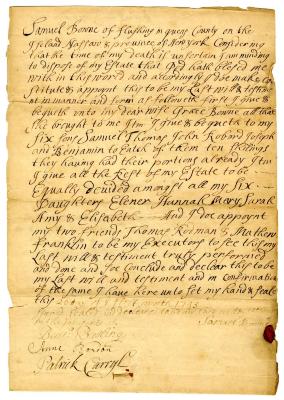 Samuel Bowne of flushing in queens County on the
Island Nassaw & province of New york Considering
that the time of my death is uncertain & am minding
to dispose of my Estate that God hath blest me
with in this world and accordingly I doe make con
stitute & appoynt this to be my Last will & testiment
in manner and form as followeth first I give &
bequeth unto my dear wife Grace Bowne all that
she brought to me Itm I give & bequeth to my
Six sons Samuel Thomas John Robird Joseph
and Benjamin to Each of them ten shillings
they having had their portions already Itm
I give all the Rest of my Estate to be
Equally devided amongst all my six
Daughters Elener Hannah Mary Sarah
Amy & Elisabeth And I doe appoynt
my two friends Thomas Rodman & Mathew
Franklin to be my Executors to see this my
Last will & testiment truly perforated
and done and soe Conclude and declear this to be
my Last will and testiment and in Confirmation
of the same I have here unto set my hand & seale
this
Samuel
Anne
Patrick Carryl